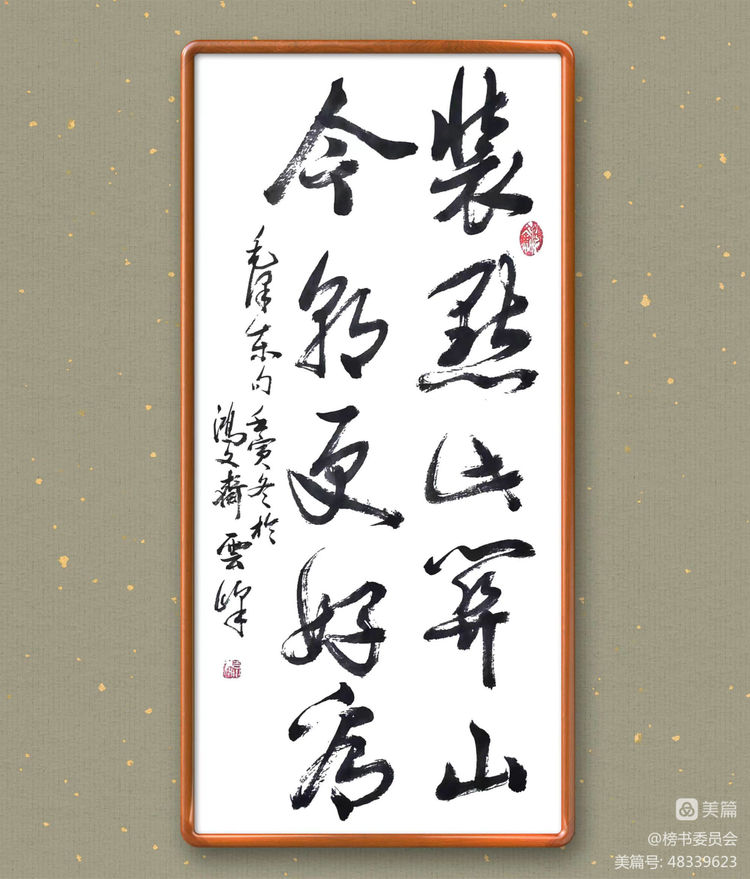 裝點此關山
今朝更好看
毛澤东句 壬寅冬於
鴻文齋雲峰
美篇
@榜书委员会
美篇号: 48339623